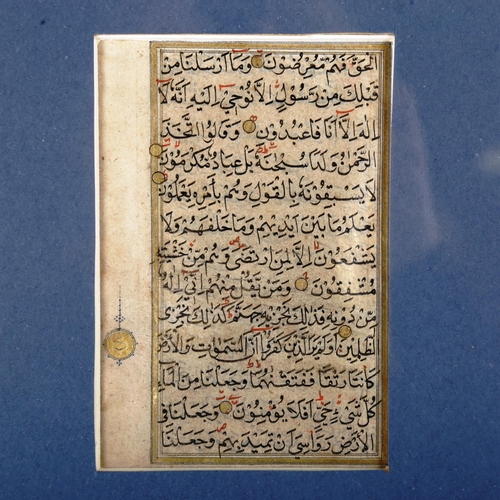 الحق فهم معرضون وما ارسلنا من
قبلك من رسول الا نوحي اليه انه لا
اله الا انا فاعبدون وقالوا اتخذ
الرحمن ولدا سبحنه بل عباد مكرمون
لا يسبقونه بالقول وهم بامره يعملون
يعلم ما بين ايديهم وما خلفهم ولا
يشفعون الا لمن ارتضى وهم من خشيته
مشفقون ومن يقل منهم اني اله
من دونه فذلك نجزيه جهنم كذلك نجزي
الظلمين اولم ير الذين كفروا ان السموات والارض
كانتا رتقا ففتقنهما وجعلنا من الماء
كل شيء حي افلا يؤمنون وجعلنا في
الارض رواسي ان تميد بهم وجعلنا